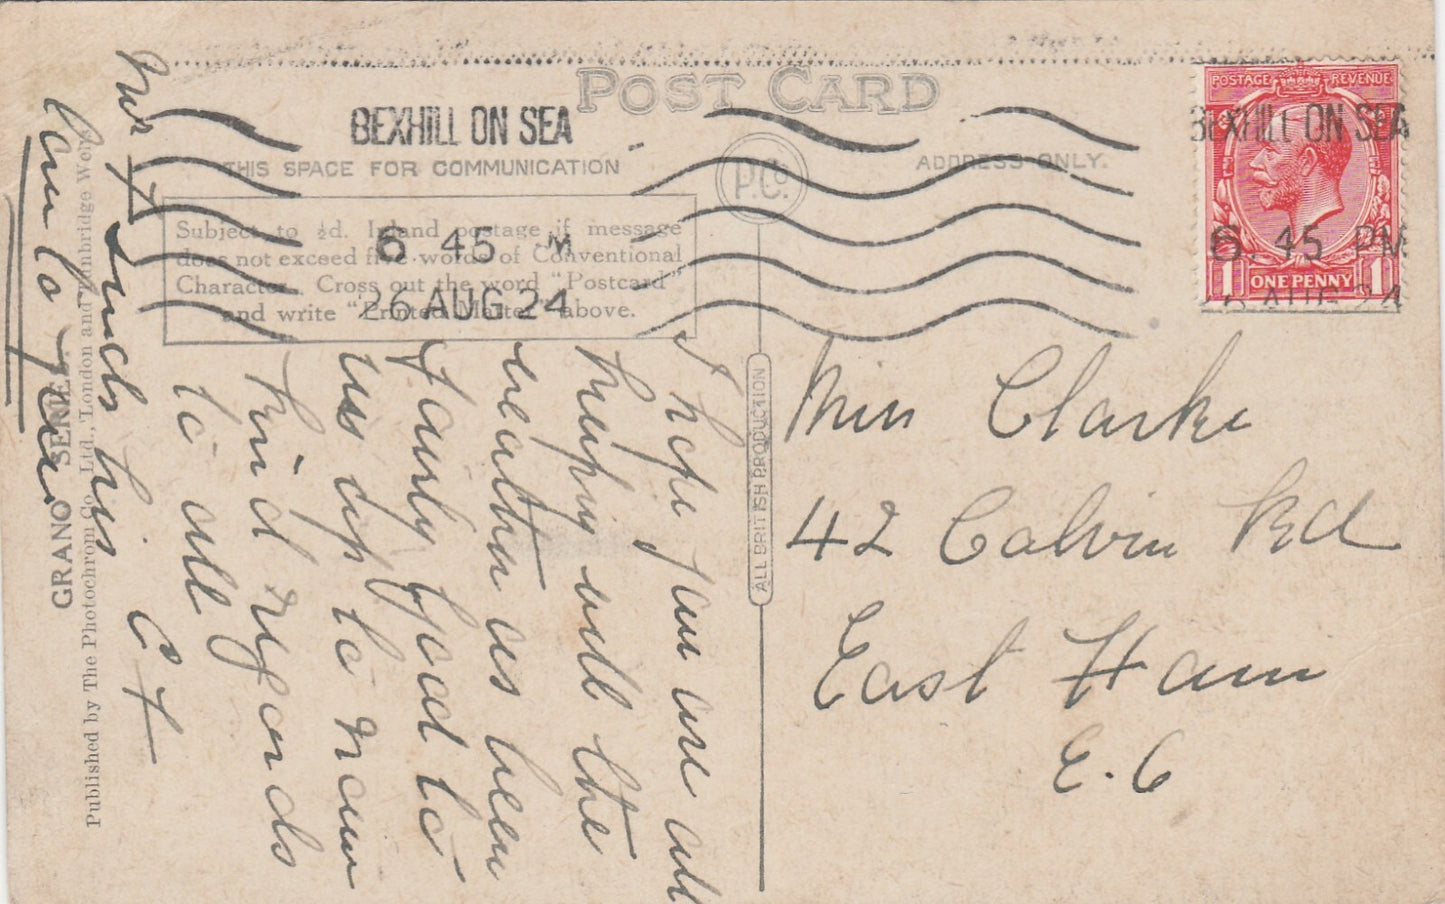 POST CARD
BEXHILL ON SEA
THIS SPACE FOR COMMUNICATION
ADDRESS ONLY.
P.Co.
Subject to ½d. Inland postage if message
does not exceed five words of Conventional
Character. Cross out the word "Postcard"
and write "Printed Matter" above.
6 45 M
26 AUG 24
POSTAGE REVENUE
BEXHILL ON SEA
6.45 PM
1 ONE PENNY 1
6 AUG 24
ALL BRITISH PRODUCTION
GRANO SERIES
Published by The Photochrom Co., Ltd., London and Tunbridge Wells
Miss Clarke
42 Calvin Rd
East Ham
E.6
I hope you are all
keeping well the
weather as been
fairly good to
us up to now
kind regards
to all
Mr F sends his
C F
love to you